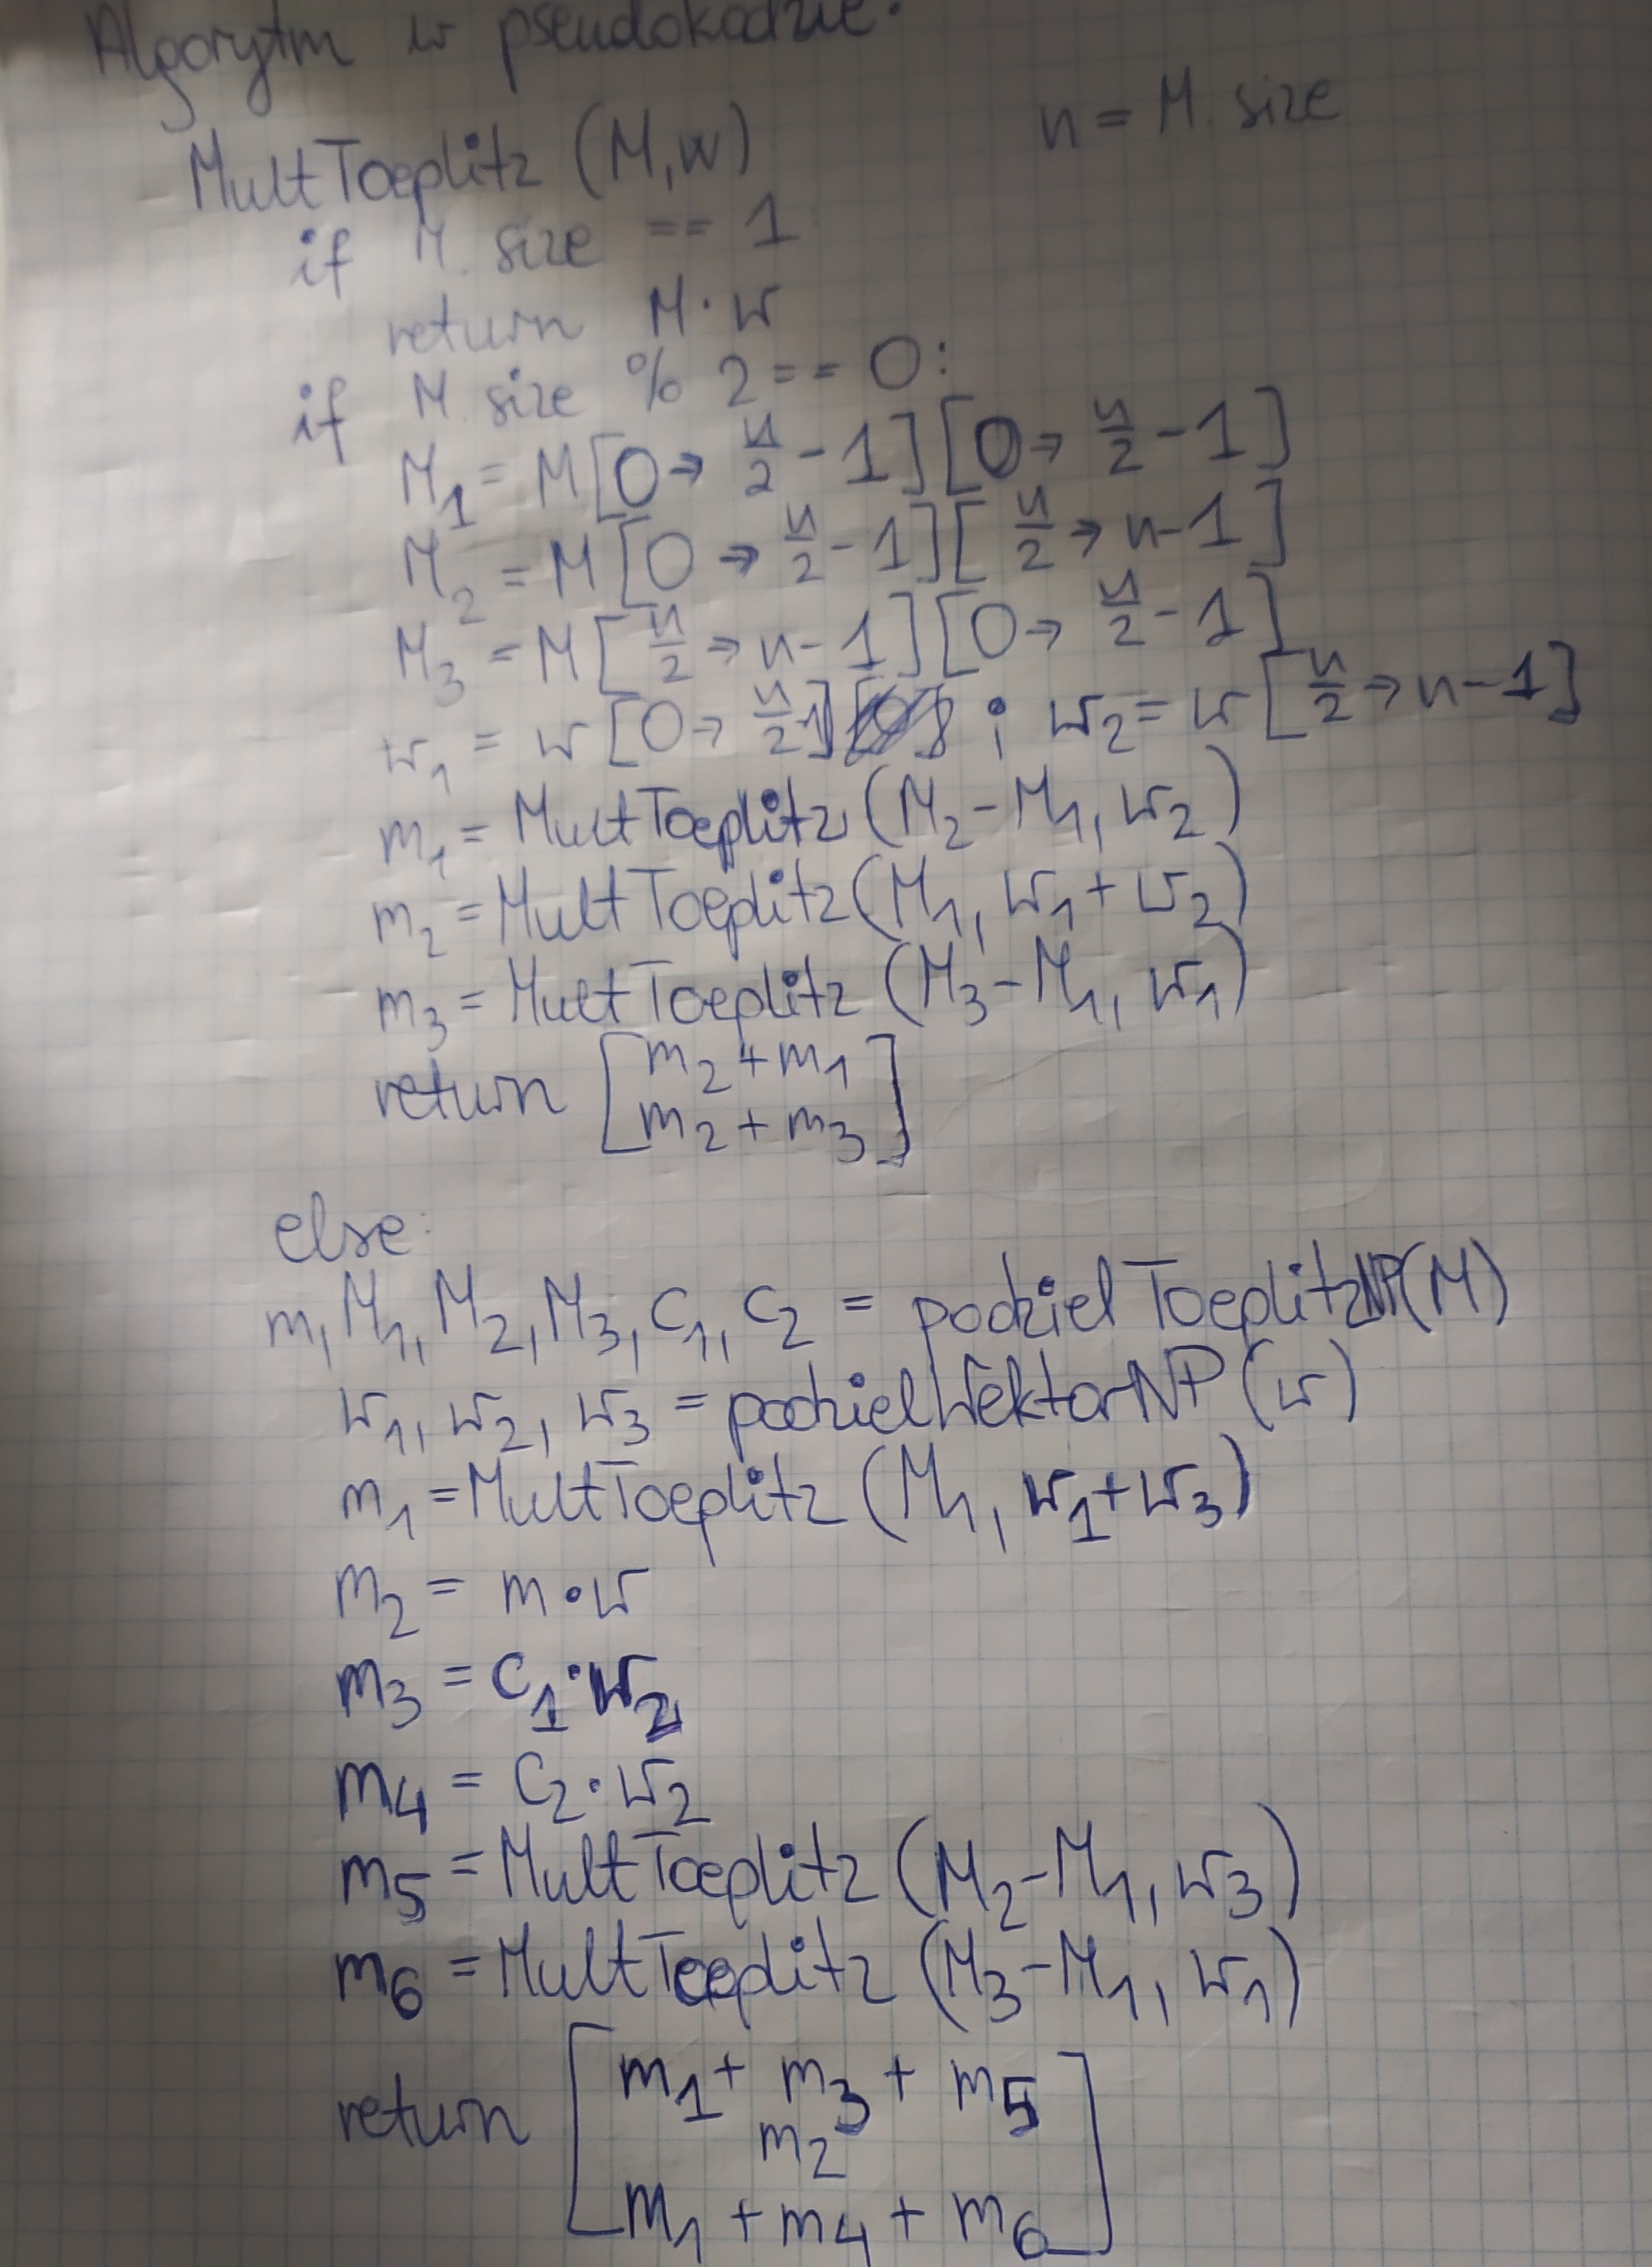 Algorytm w pseudokodzie:
n = M. size
MultToeplitz (M, w)
if M. size == 1
return M · w
if M. size % 2 == 0:
M₁ = M[0 → n/2 - 1][0 → n/2 - 1]
M₂ = M[0 → n/2 - 1][n/2 → n-1]
M₃ = M[n/2 → n-1][0 → n/2 - 1]
w₁ = w[0 → n/2 -1] ; w₂ = w[n/2 → n-1]
m₁ = MultToeplitz (M₂ - M₁, w₂)
m₂ = MultToeplitz (M₁, w₁ + w₂)
m₃ = MultToeplitz (M₃ - M₁, w₁)
return [m₂ + m₁
m₂ + m₃]
else:
m, M₁, M₂, M₃, c₁, c₂ = podzielToeplitzNP(M)
w₁, w₂, w₃ = podzielWektorNP (w)
m₁ = MultToeplitz (M₁, w₁ + w₃)
m₂ = m · w
m₃ = c₁ · w₂
m₄ = c₂ · w₂
m₅ = MultToeplitz (M₂ - M₁, w₃)
m₆ = MultToeplitz (M₃ - M₁, w₁)
return [m₁ + m₃ + m₅
m₂
m₁ + m₄ + m₆]